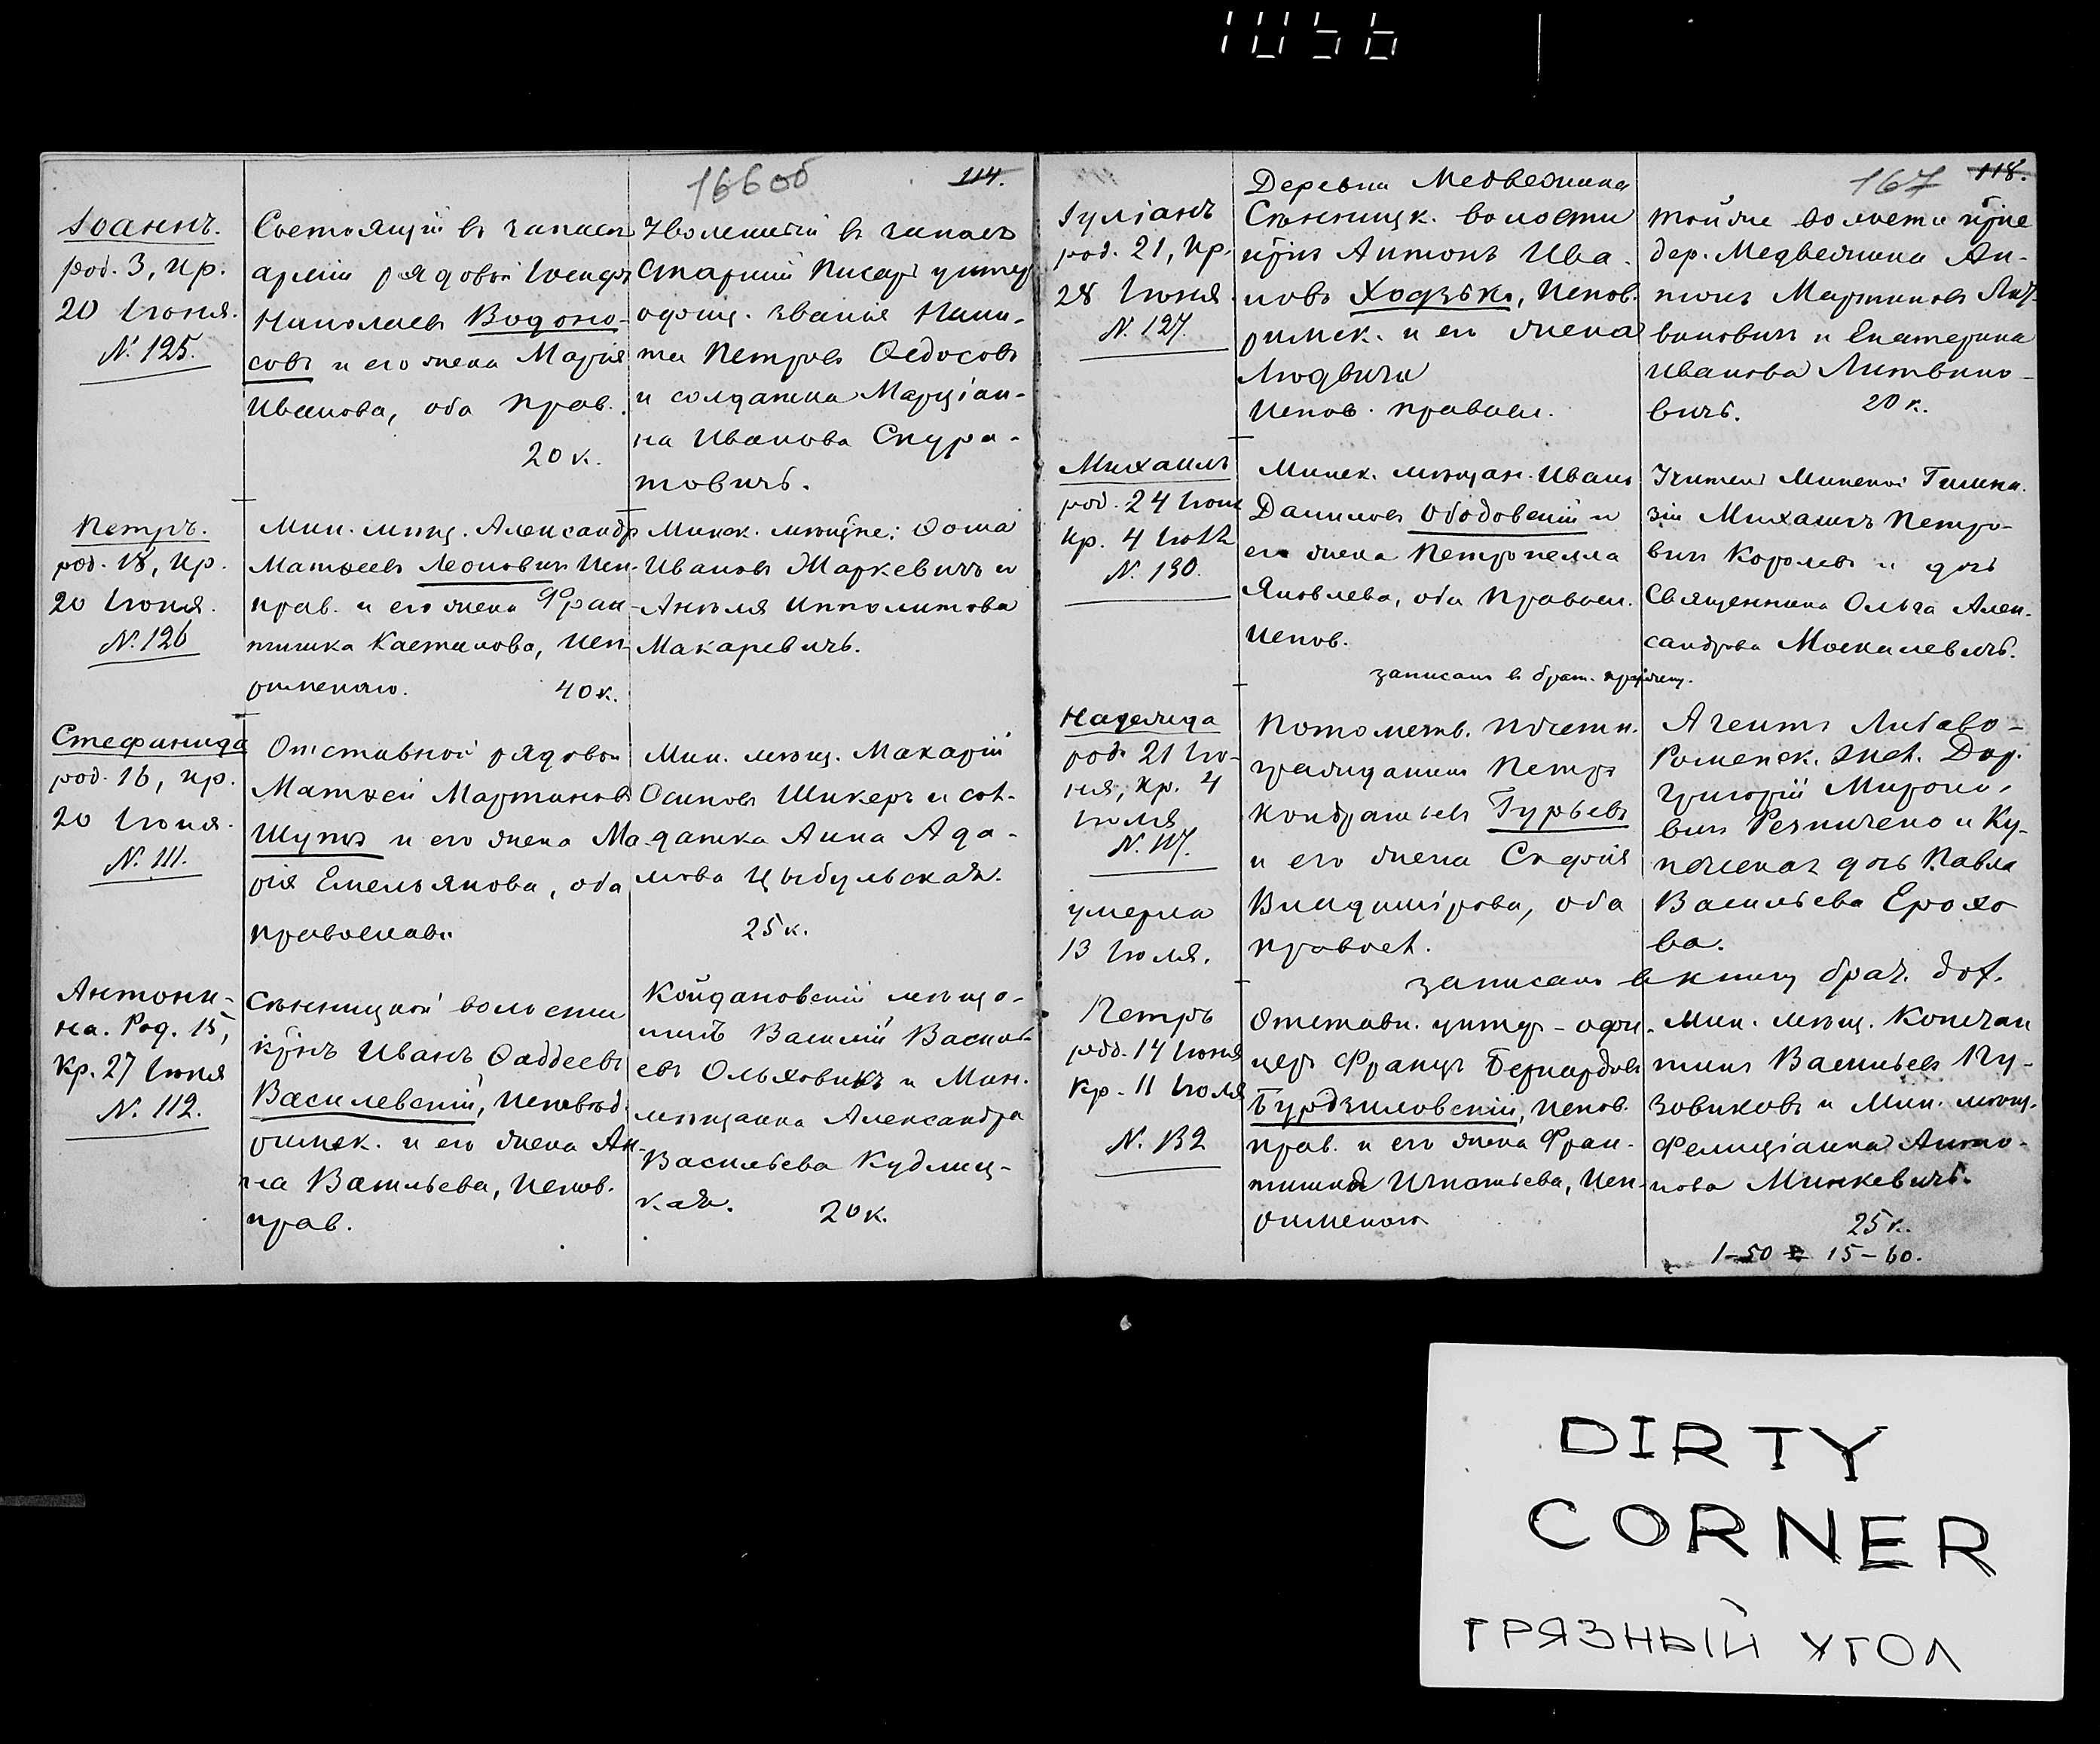 1056
166об
114.
Іоаннъ.
род. 3, кр.
20 Іюня.
N. 125.
Состоящій въ запасѣ
арміи рядовой Іосифъ
Николаевъ Водоно-
совъ и его жена Марія
Иванова, оба прав.
20 к.
Уволенный въ запасъ
Старшій Писарь унтер
офиц. званія Ники-
та Петровъ Ѳедосовъ
и солдатка Марціан-
на Иванова Скура-
товичъ.
Петръ.
род. 18, кр.
20 Іюня.
N. 126
Мин. мѣщ. Александръ
Матѳеевъ Леоновичъ исп.
прав. и его жена Фран-
тишка Кастанова, исп.
римскаго.
40 к.
Минск. мѣщне: Ѳома
Ивановъ Маркевичъ и
Анѣля Ипполитова
Макаревичъ.
Стефанида
род. 16, кр.
20 Іюня.
N. 111.
Отставной рядовой
Матѳей Мартиновъ
Шутъ и его жена Ма
рія Емельянова, оба
православн
Мин. мѣщ. Макарій
Осиповъ Шикеръ и сол-
датка Анна Ада-
мова Цыбульская.
25 к.
Антони-
на. Род. 15,
кр. 27 Іюня
N. 112.
Сѣнницкой волости
кр̃нъ Иванъ Ѳаддеевъ
Василевскій, исповѣд.
римск. и его жена Ан-
на Васильева, испов.
прав.
Койдановскій мѣща-
нинъ Василій Василь-
евъ Ольховикъ и Мин.
мѣщанка Александра
Васильева Кудлиц-
кая.
20 к.
167
118.
Іуліанъ
род. 21, кр.
28 Іюня.
N. 127.
Деревни Медвежина
Сѣнницк. волости
кр̃нъ Антонъ Ива-
новъ Ходзько, испов.
римск. и его жена
Людвига
испов. правосл.
тойже волости кр̃не
дер. Медвежина Ан-
тонъ Мартиновъ Лит-
виновичъ и Екатерина
Иванова Литвино-
вичъ.
20 к.
Михаилъ
род. 24 Іюня
кр. 4 Іюля
N. 130.
Минск. мѣщан. Иванъ
Даниловъ Ободовскій и
его жена Петронелла
Яковлева, оба правосл.
испов.
Учитель Минской Гимна-
зіи Михаилъ Петро-
вичъ Королевъ и дочь
Священника Ольга Алек-
сандрова Москалевичъ.
записанъ в брат.
Надежда
род. 21 Ію-
ня, кр. 4
Іюля
N. 117.
умерла
13 Іюля.
Потомств. почетн.
гражданинъ Петръ
Кондратьевъ Гурьевъ
и его жена Софія
Владимірова, оба
правосл.
Агентъ Либаво-
Роменск. жел. Дор.
Григорій Мироно-
вичъ Резниченко и Ку-
печеская дочь Павла
Васильева Ерохо
ва.
записанъ в книгу брач. док.
Петръ
род. 14 Іюня
кр. 11 Іюля
N. 132
Отставн. унтер-офи-
церъ Францъ Бернардовъ
Бурдзиловскій, испов.
прав. и его жена Фран-
тишка Игнатьева, исп.
римскаго
Мин. мѣщ. Констан
тинъ Васильевъ Пу-
зовиковъ и Мин. мѣщ.
Фелиціанна Анто-
нова Минкевичъ.
25 к.
1-50 15-60.
DIRTY
CORNER
ГРЯЗНЫЙ УГОЛ